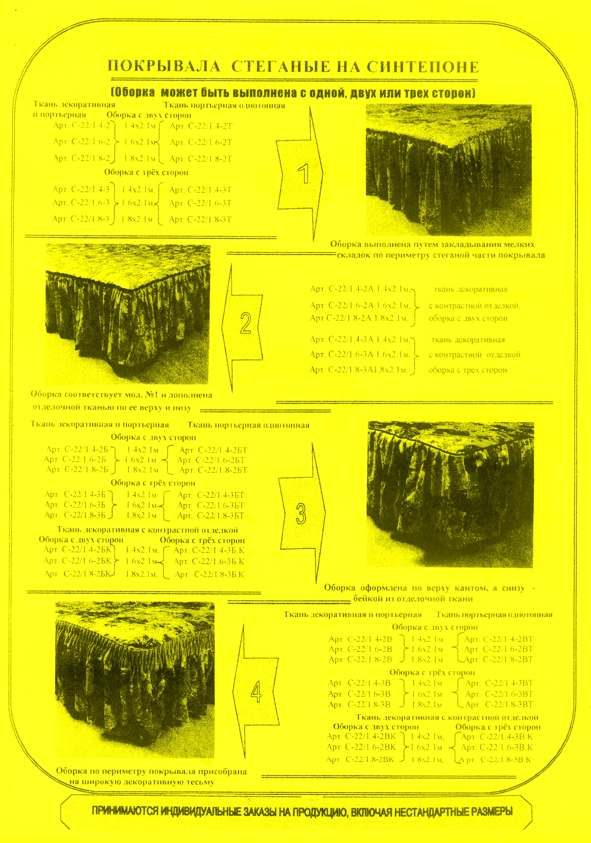 ПОКРЫВАЛА СТЕГАНЫЕ НА СИНТЕПОНЕ
(Оборка может быть выполнена с одной, двух или трех сторон)
Ткань декоративная и портьерная Ткань портьерная однотонная
Оборка с двух сторон
Арт. С-22/1.4-2 1.4х2.1м Арт. С-22/1.4-2Т
Арт. С-22/1.6-2 1.6х2.1м Арт. С-22/1.6-2Т
Арт. С-22/1.8-2 1.8х2.1м Арт. С-22/1.8-2Т
Оборка с трёх сторон
Арт. С-22/1.4-3 1.4х2.1м Арт. С-22/1.4-3Т
Арт. С-22/1.6-3 1.6х2.1м Арт. С-22/1.6-3Т
Арт. С-22/1.8-3 1.8х2.1м Арт. С-22/1.8-3Т
1
Оборка выполнена путем закладывания мелких
складок по периметру стеганой части покрывала
2
Арт. С-22/1.4-2А 1.4х2.1м, ткань декоративная
Арт. С-22/1.6-2А 1.6х2.1м, с контрастной отделкой,
Арт.С-22/1.8-2А 1.8х2.1м, оборка с двух сторон
Арт. С-22/1.4-3А 1.4х2.1м, ткань декоративная
Арт. С-22/1.6-3А 1.6х2.1м, с контрастной отделкой
Арт. С-22/1.8-3А1.8х2.1м, оборка с трех сторон
Оборка соответствует мод. №1 и дополнена
отделочной тканью по ее верху и низу
Ткань декоративная и портьерная Ткань портьерная однотонная
Оборка с двух сторон
Арт. С-22/1.4-2Б 1.4х2.1м Арт. С-22/1.4-2БТ
Арт. С-22/1.6-2Б 1.6х2.1м Арт. С-22/1.6-2БТ
Арт. С-22/1.8-2Б 1.8х2.1м Арт. С-22/1.8-2БТ
Оборка с трёх сторон
Арт. С-22/1.4-3Б 1.4х2.1м Арт. С-22/1.4-3БТ
Арт. С-22/1.6-3Б 1.6х2.1м Арт. С-22/1.6-3БТ
Арт. С-22/1.8-3Б 1.8х2.1м Арт. С-22/1.8-3БТ
Ткань декоративная с контрастной отделкой
Оборка с двух сторон Оборка с трёх сторон
Арт. С-22/1.4-2БК 1.4х2.1м Арт. С-22/1.4-3Б К
Арт. С-22/1.6-2БК 1.6х2.1м Арт. С-22/1.6-3Б К
Арт. С-22/1.8-2БК 1.8х2.1м, Арт. С-22/1.8-3Б К
3
Оборка оформлена по верху кантом, а снизу -
бейкой из отделочной ткани
4
Ткань декоративная и портьерная Ткань портьерная однотонная
Оборка с двух сторон
Арт. С-22/1.4-2В 1.4х2.1м Арт. С-22/1.4-2ВТ
Арт. С-22/1.6-2В 1.6х2.1м Арт. С-22/1.6-2ВТ
Арт. С-22/1.8-2В 1.8х2.1м Арт. С-22/1.8-2ВТ
Оборка с трёх сторон
Арт. С-22/1.4-3В 1.4х2.1м Арт. С-22/1.4-3ВТ
Арт. С-22/1.6-3В 1.6х2.1м Арт. С-22/1.6-3ВТ
Арт. С-22/1.8-3В 1.8х2.1м Арт. С-22/1.8-3ВТ
Ткань декоративная с контрастной отделкой
Оборка с двух сторон Оборка с трёх сторон
Арт. С-22/1.4-2ВК 1.4х2.1м, Арт. С-22/1.4-3В К
Арт. С-22/1.6-2ВК 1.6х2.1м Арт. С-22/1.6-3В К
Арт. С-22/1.8-2ВК 1.8х2.1м, Арт. С-22/1.8-3В К
Оборка по периметру покрывала присобрана
на широкую декоративную тесьму
ПРИНИМАЮТСЯ ИНДИВИДУАЛЬНЫЕ ЗАКАЗЫ НА ПРОДУКЦИЮ, ВКЛЮЧАЯ НЕСТАНДАРТНЫЕ РАЗМЕРЫ